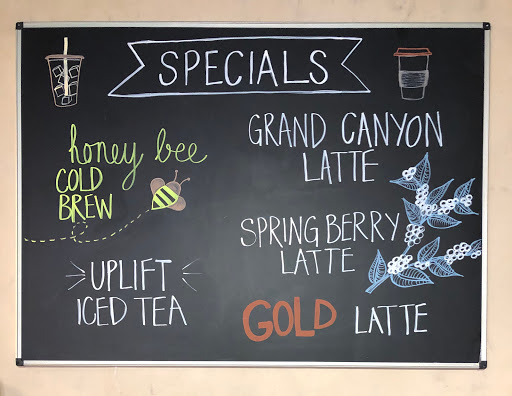 SPECIALS
honey bee
COLD
BREW
UPLIFT
ICED TEA
GRAND CANYON
LATTE
SPRING BERRY
LATTE
GOLD LATTE